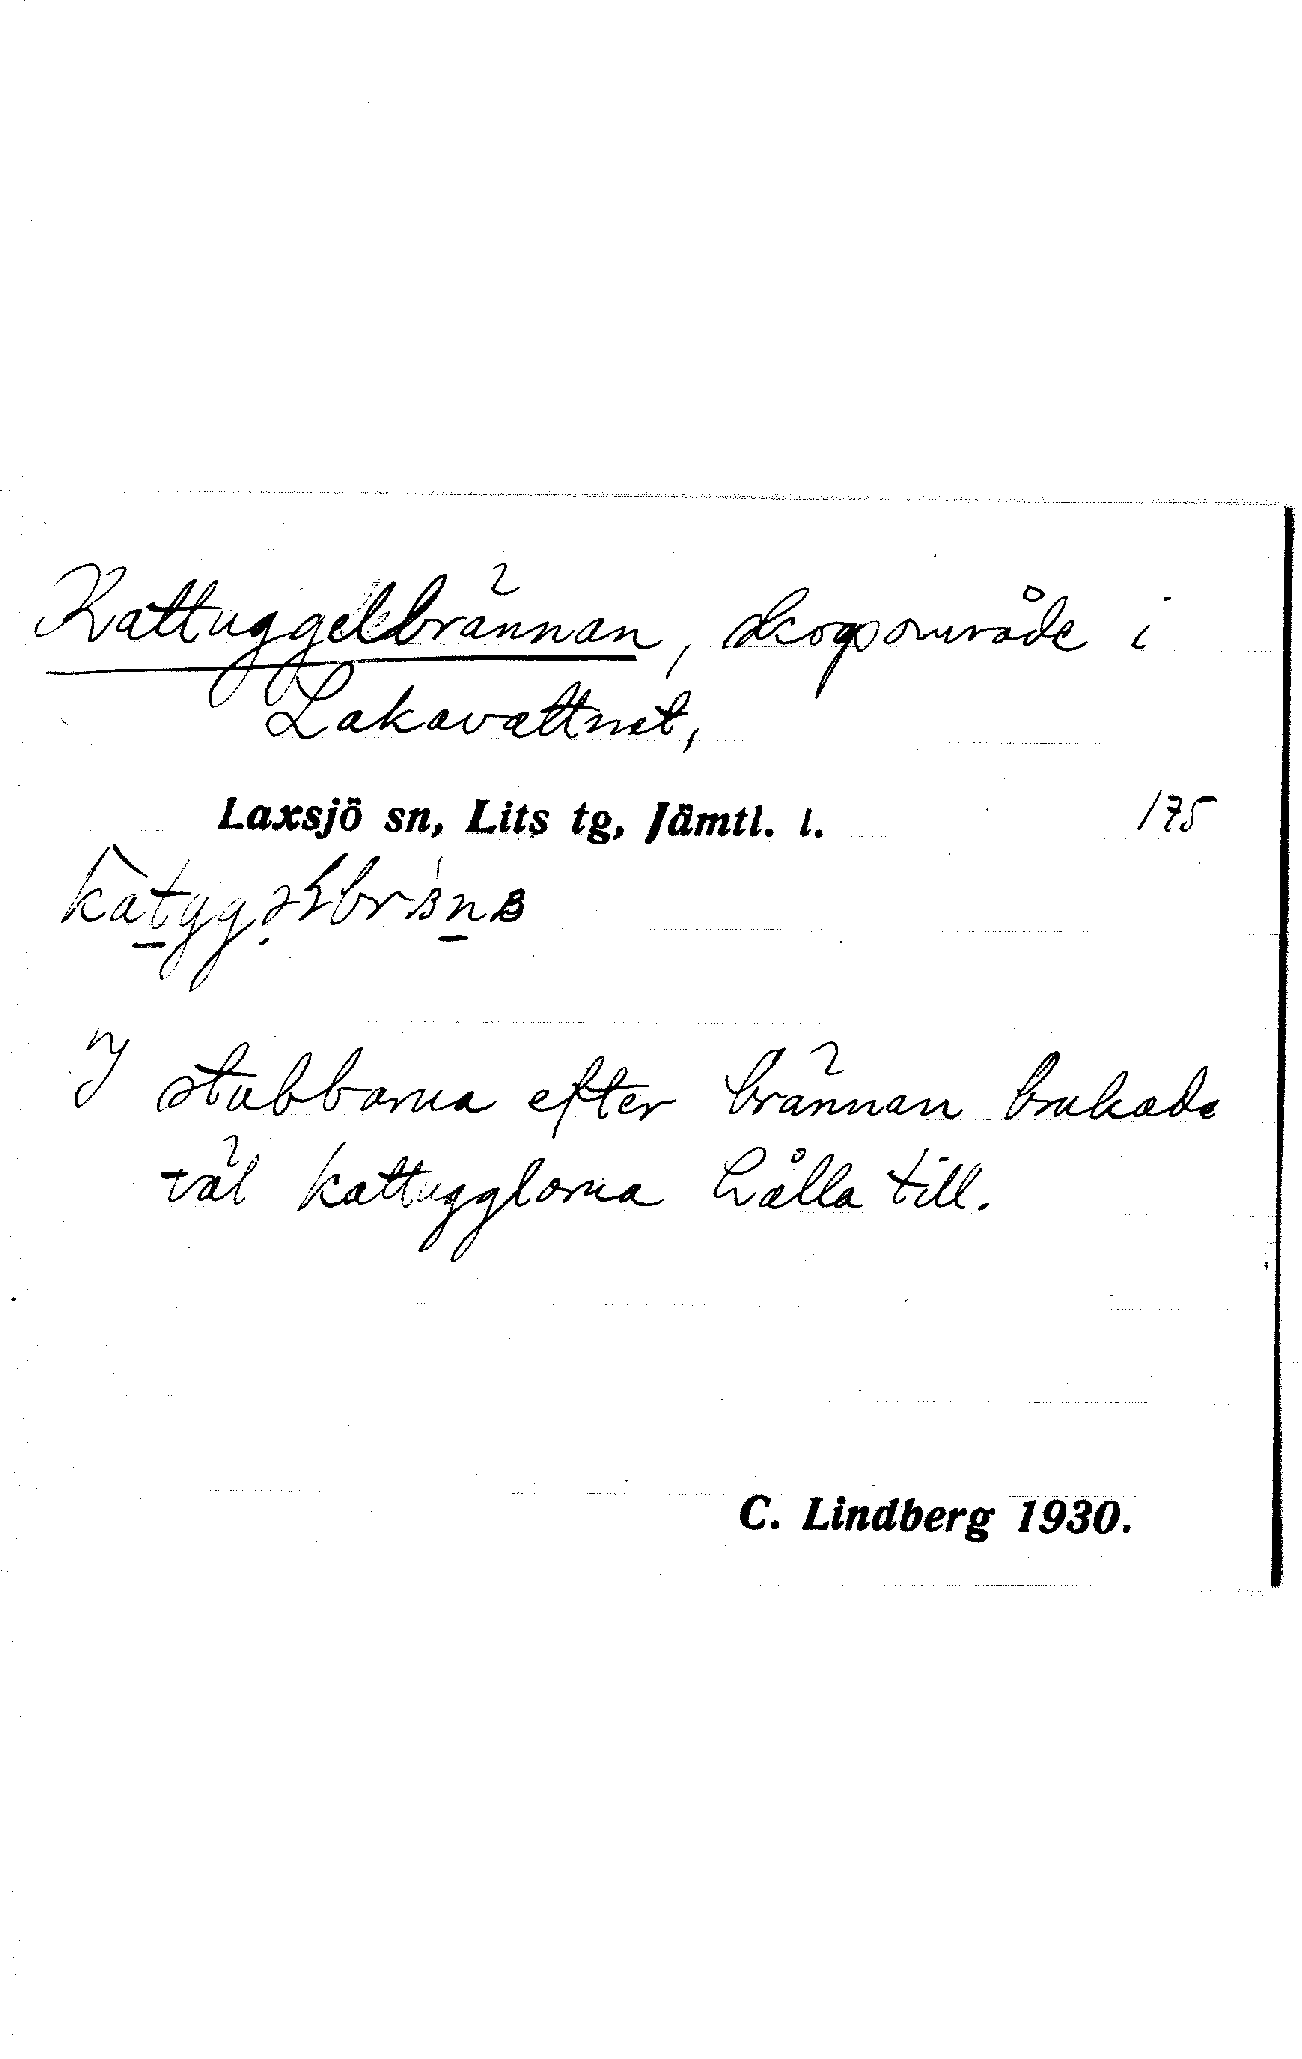 Kattuggelbrännan, skogsområde i
Lakavattnet,
Laxsjö sn, Lits tg, Jämtl. l.
175
I stubbarna efter brännan brukade
väl kattugglorna hålla till.
C. Lindberg 1930.